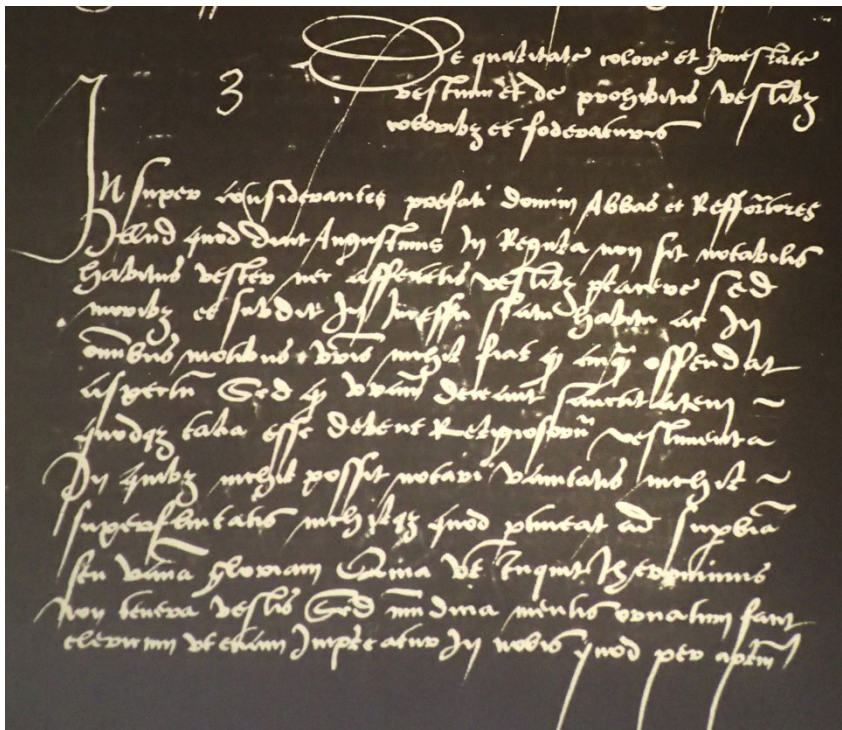 De qualitate colore et honestate
vestium et de prohibitis vestibz
coloribz et foderaturis
3
In super considerantes prefati domini Abbas et Reffor̃tores
Illud quod dicit Augustinus In Regula non sit notabilis
habitus vester nec affectetis vestibz placere Sed
moribz et subdit In Incessu statu habitu ac In
omĩbus motibus vr̃is nichil fiat qͥ offendat
aspectũ Sed qͥ vrãm deceant sanctitatem ~
quodqz talia esse debent Religiosorũ vestimenta
In quibz nichil possit notari vanitatis nichil ~
superfluitatis nichilqz quod ptineat ad supbiã
seu vanã gloriam Quia vt Inquit Iheronimus
non tenera vestis Sed mũdicia mentis ornatum facit
clericum vt etiam Imprecatur In nobis quod per aptm̃